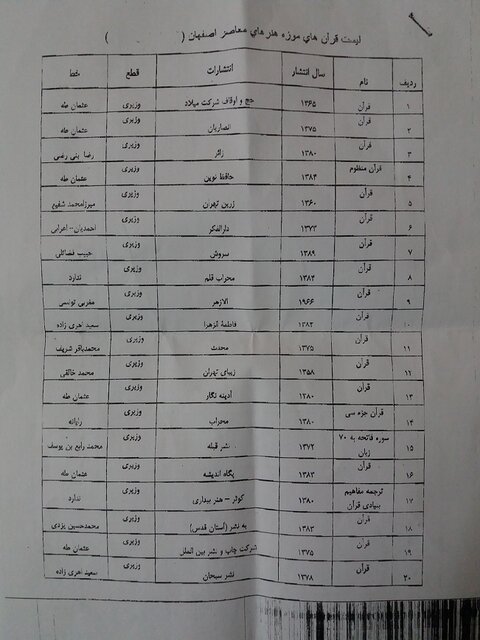 لیست قرآن های موزه هنرهای معاصر اصفهان ( )
ردیف نام سال انتشار انتشارات قطع خط
۱ قرآن ۱۳۶۵ حج و اوقاف شرکت میلاد وزیری عثمان طه
۲ قرآن ۱۳۷۵ انصاریان وزیری عثمان طه
۳ قرآن ۱۳۸۰ زائر وزیری رضا بنی رضی
۴ قرآن منظوم ۱۳۸۴ حافظ نوین وزیری عثمان طه
۵ قرآن ۱۳۶۰ زرین تهران وزیری میرزامحمد شفیع
۶ قرآن ۱۳۷۳ دارالفکر وزیری احمدیان - اعرابی
۷ قرآن ۱۳۸۹ سروش وزیری حبیب فضائلی
۸ قرآن ۱۳۸۴ محراب قلم وزیری ندارد
۹ قرآن ۱۹۶۶ الازهر وزیری مغربی تونسی
۱۰ قرآن ۱۳۸۲ فاطمة الزهرا وزیری سعید اهری زاده
۱۱ قرآن ۱۳۷۵ محدث وزیری محمدباقر شریف
۱۲ قرآن ۱۳۵۸ زیبای تهران وزیری محمد خالقی
۱۳ قرآن ۱۳۸۰ آدینه نگار وزیری عثمان طه
۱۴ قرآن جزء سی ۱۳۸۰ محراب وزیری رایانه
۱۵ سوره فاتحه به ۷۰ ۱۳۷۲ نشر قبله وزیری محمد رابع بن یوسف
زبان
۱۶ قرآن ۱۳۸۳ پگاه اندیشه وزیری عثمان طه
۱۷ ترجمه مفاهیم ۱۳۸۰ کوثر – هنر بیداری وزیری ندارد
بنیادی قرآن
۱۸ قرآن ۱۳۸۳ به نشر (آستان قدس) وزیری محمدحسین یزدی
۱۹ قرآن ۱۳۷۵ شرکت چاپ و نشر بین الملل وزیری عثمان طه
۲۰ قرآن ۱۳۷۸ نشر سبحان وزیری سعید اهری زاده